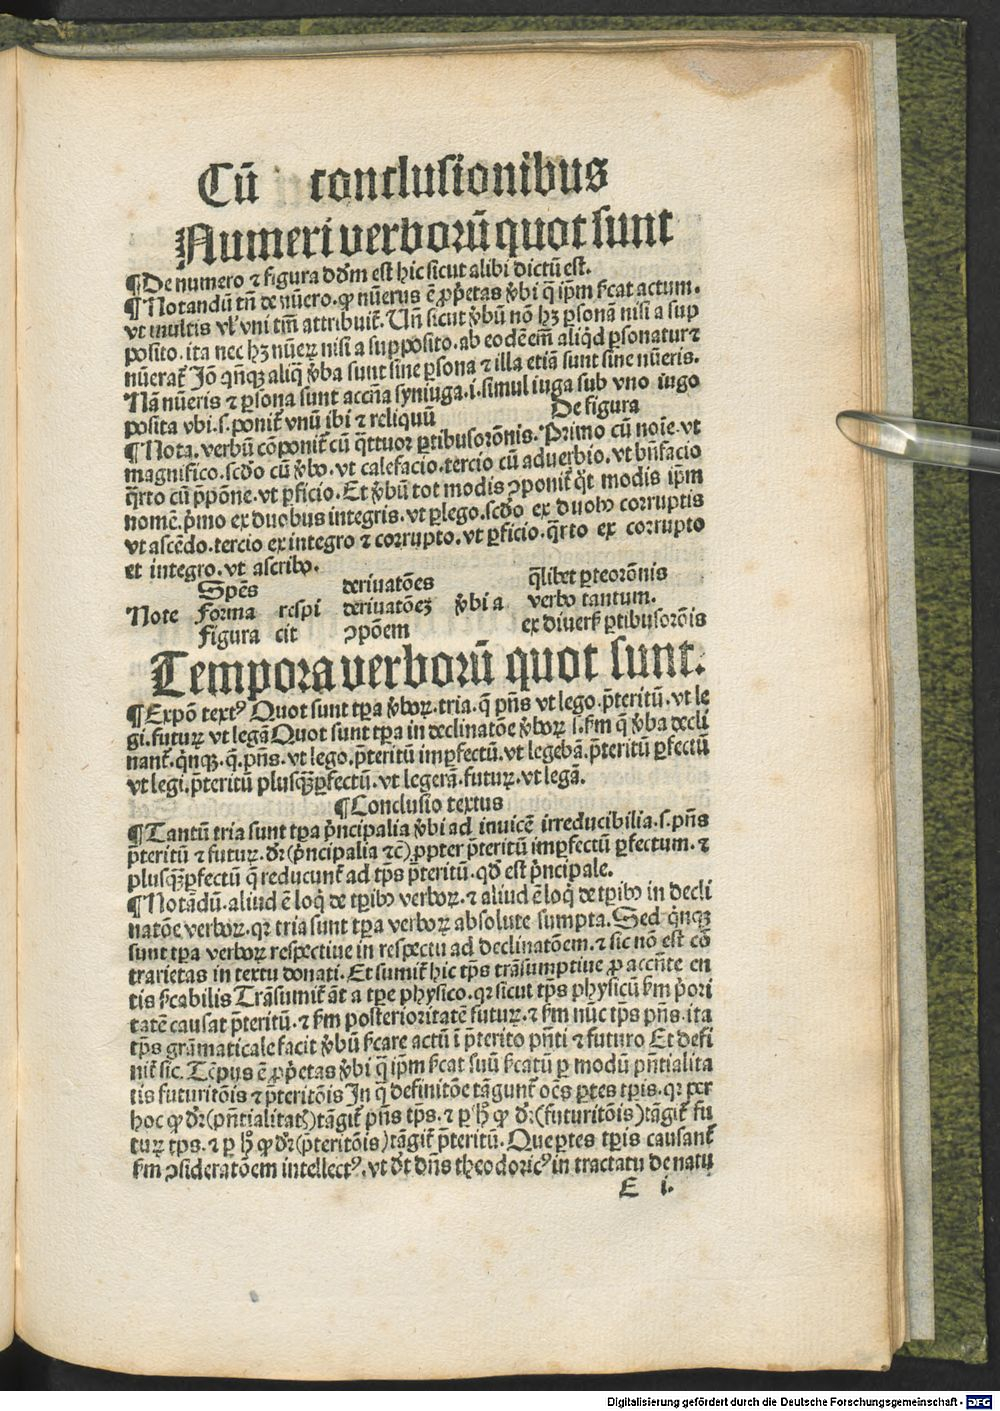 Cū conclusionibus
Numeri verborū quot sunt
¶De numero ⁊ figura dōm est hic sicut alibi dictū est.
¶Notandū tn̄ de nūero. ꝙ nūerus ē ꝓp̄etas v̄bi q̄ ip̄m sc̄at actum.
vt multis vl' vni tm̄ attribuit᷑. Un̄ sicut v̄bū nō hꝫ ꝑsonā nisi a sup
posito. ita nec hꝫ nūeꝝ nisi a supposito. ab eodē em̄ aliq̄d ꝑsonatur ⁊
nūerat᷑ Jō qn̄qꝫ aliq̄ v̄ba sunt sine ꝑsona ⁊ illa etiā sunt sine nūeris.
Nā nūeris ⁊ ꝑsona sunt accn̄a syniuga. i. simul iuga sub vno iugo
posita vbi. s. ponit᷑ vnū ibi ⁊ reliquū De figura
¶Nota. verbū cōponit᷑ cū q̄ttuor ꝑtibus orōnis. Primo cū noīe. vt
magnifico. scd̄o cū v̄bo. vt calefacio. tercio cū aduerbio. vt bn̄facio
q̄rto cū p̄pōne. vt ꝑficio. Et v̄bū tot modis ꝯponit᷑ q̄t modis ip̄m
nomē. p̄mo ex duobus integris. vt ꝑlego. scd̄o ex duobꝰ corruptis
vt ascēdo. tercio ex integro ⁊ corrupto. vt ꝑficio. q̄rto ex corrupto
et integro. vt ascribo.
Spēs deriuatōes q̄libet ꝑte orōnis
Note forma respi deriuatōeꝫ v̄bi a verbo tantum.
figura cit ꝯpōem ex diuers᷑ ꝑtibus orōis
Tempora verborū quot sunt.
¶Expō textꝰ Quot sunt tꝑa v̄boꝝ. tria. q̄ pn̄s vt lego. p̄teritū. vt le
gi. futuꝝ vt legā Quot sunt tꝑa in declinatōe v̄boꝝ i. scm̄ q̄ v̄ba decli
nant᷑. q̄nqꝫ. q̄. pn̄s. vt lego. p̄teritū imꝑfectū. vt legebā. p̄teritū ꝑfectū
vt legi. p̄teritū plusqꝫꝑfectū. vt legerā. futuꝝ. vt legā.
¶Conclusio textus
¶Tantū tria sunt tꝑa p̄ncipalia v̄bi ad inuicē irreducibilia. s. pn̄s
p̄teritū ⁊ futuꝝ. dr̄ (p̄ncipalia ⁊c̄) ꝓpter p̄teritū imꝑfectū ꝑfectum. ⁊
plusqꝫꝑfectū q̄ reducunt᷑ ad tp̄s p̄teritū. qd̄ est p̄ncipale.
¶Notādū. aliud ē loq̄ de tꝑibꝰ verboꝝ. ⁊ aliud ē loq̄ de tꝑibꝰ in decli
natōe verboꝝ. qꝛ tria sunt tꝑa verboꝝ absolute sumpta. Sed q̄nqꝫ
sunt tꝑa verboꝝ respectiue in respectu ad declinatōem. ⁊ sic nō est cō
trarietas in textu donati. Et sumit᷑ hic tp̄s trāsumptiue ꝓ accn̄te en
tis sc̄abilis Trāsumit᷑ āt a tꝑe physico. qꝛ sicut tp̄s physicū scm̄ p̄ori
tatē causat p̄teritū. ⁊ scm̄ posterioritatē futuꝝ. ⁊ scm̄ nūc tp̄s pn̄s. ita
tp̄s grāmaticale facit v̄bū sc̄are actū ī p̄terito pn̄ti ⁊ futuro Et defi
nit᷑ sic. Tēpus ē ꝓp̄etas v̄bi q̄ ip̄m sc̄at suū sc̄atū ꝑ modū pn̄tialita
tis futuritōis ⁊ p̄teritōis Jn q̄ definitōe tāgunt᷑ oēs ꝑtes tꝑis. qꝛ per
hoc ꝙ dr̄ (pn̄tialitatꝭ) tāgit᷑ pn̄s tp̄s. ⁊ ꝑ h̄ ꝙ dr̄ (futuritōis) tāgit᷑ fu
tuꝝ tp̄s. ⁊ ꝑ h̄ ꝙ dr̄ (p̄teritōis) tāgit᷑ p̄teritū. Que ꝑtes tꝑis causant᷑
scm̄ ꝯsideratōem intellectꝰ. vt dt̄ dn̄s theodoricꝰ in tractatu de natu
E i.
Digitalisierung gefördert durch die Deutsche Forschungsgemeinschaft - DFG